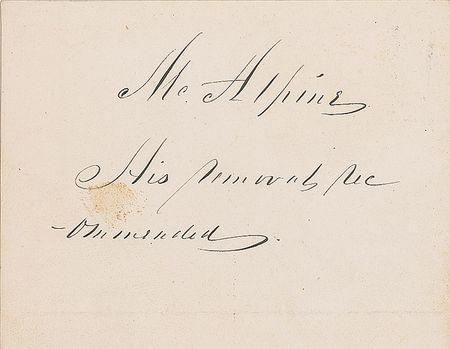 Mc. Alpine
His removal rec
-ommended.